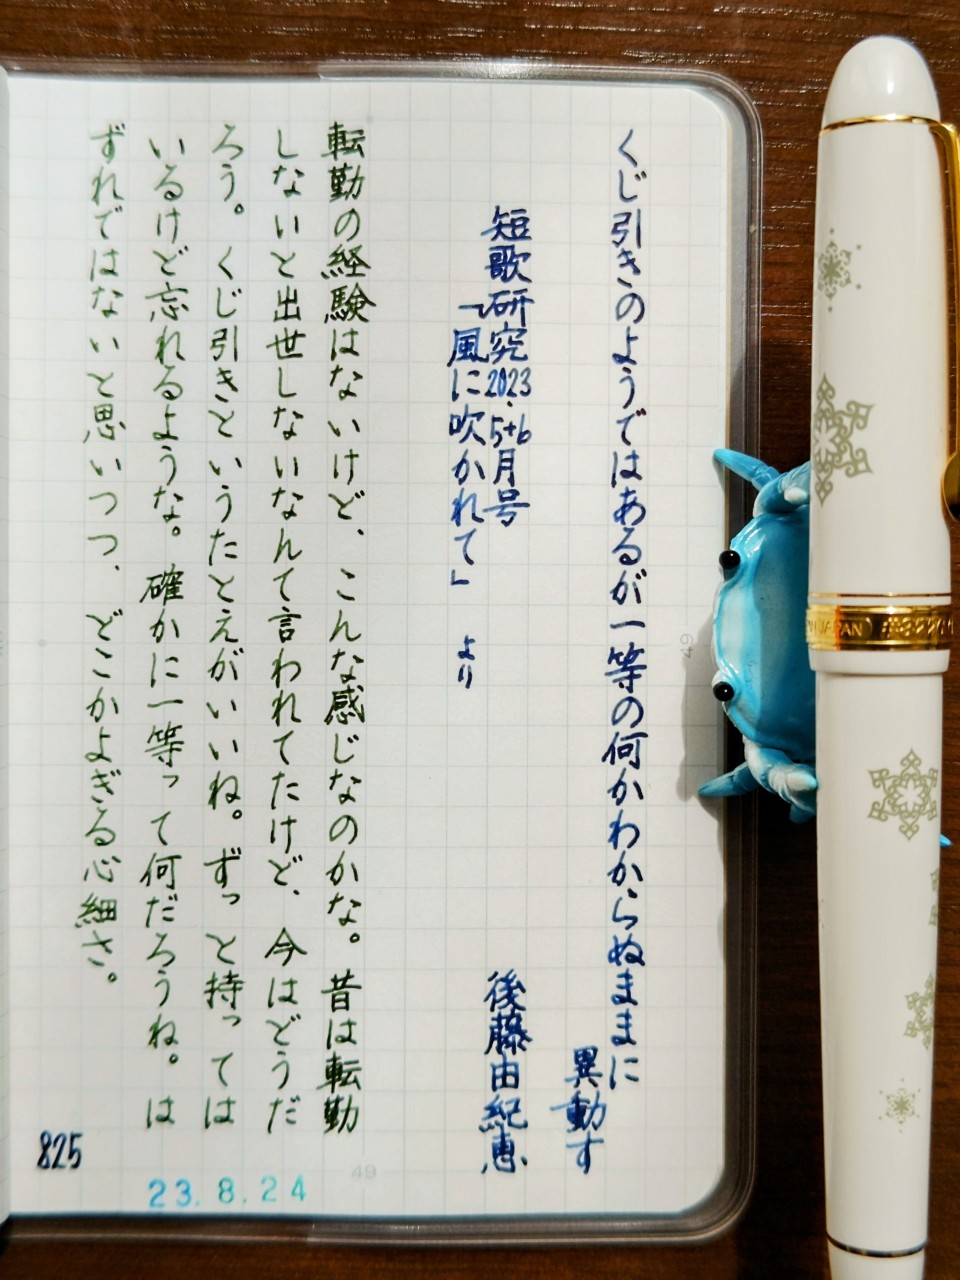 くじ引きのようではあるが一等の何かわからぬままに
異動す
短歌研究2023.5+6月号
「風に吹かれて」 より
後藤由紀恵
転勤の経験はないけど、こんな感じなのかな。昔は転勤
しないと出世しないなんて言われてたけど、今はどうだ
ろう。くじ引きというたとえがいいね。ずっと持っては
いるけど忘れるような。確かに一等って何だろうね。は
ずれではないと思いつつ、どこかよぎる心細さ。
825
23.8.24
49
49